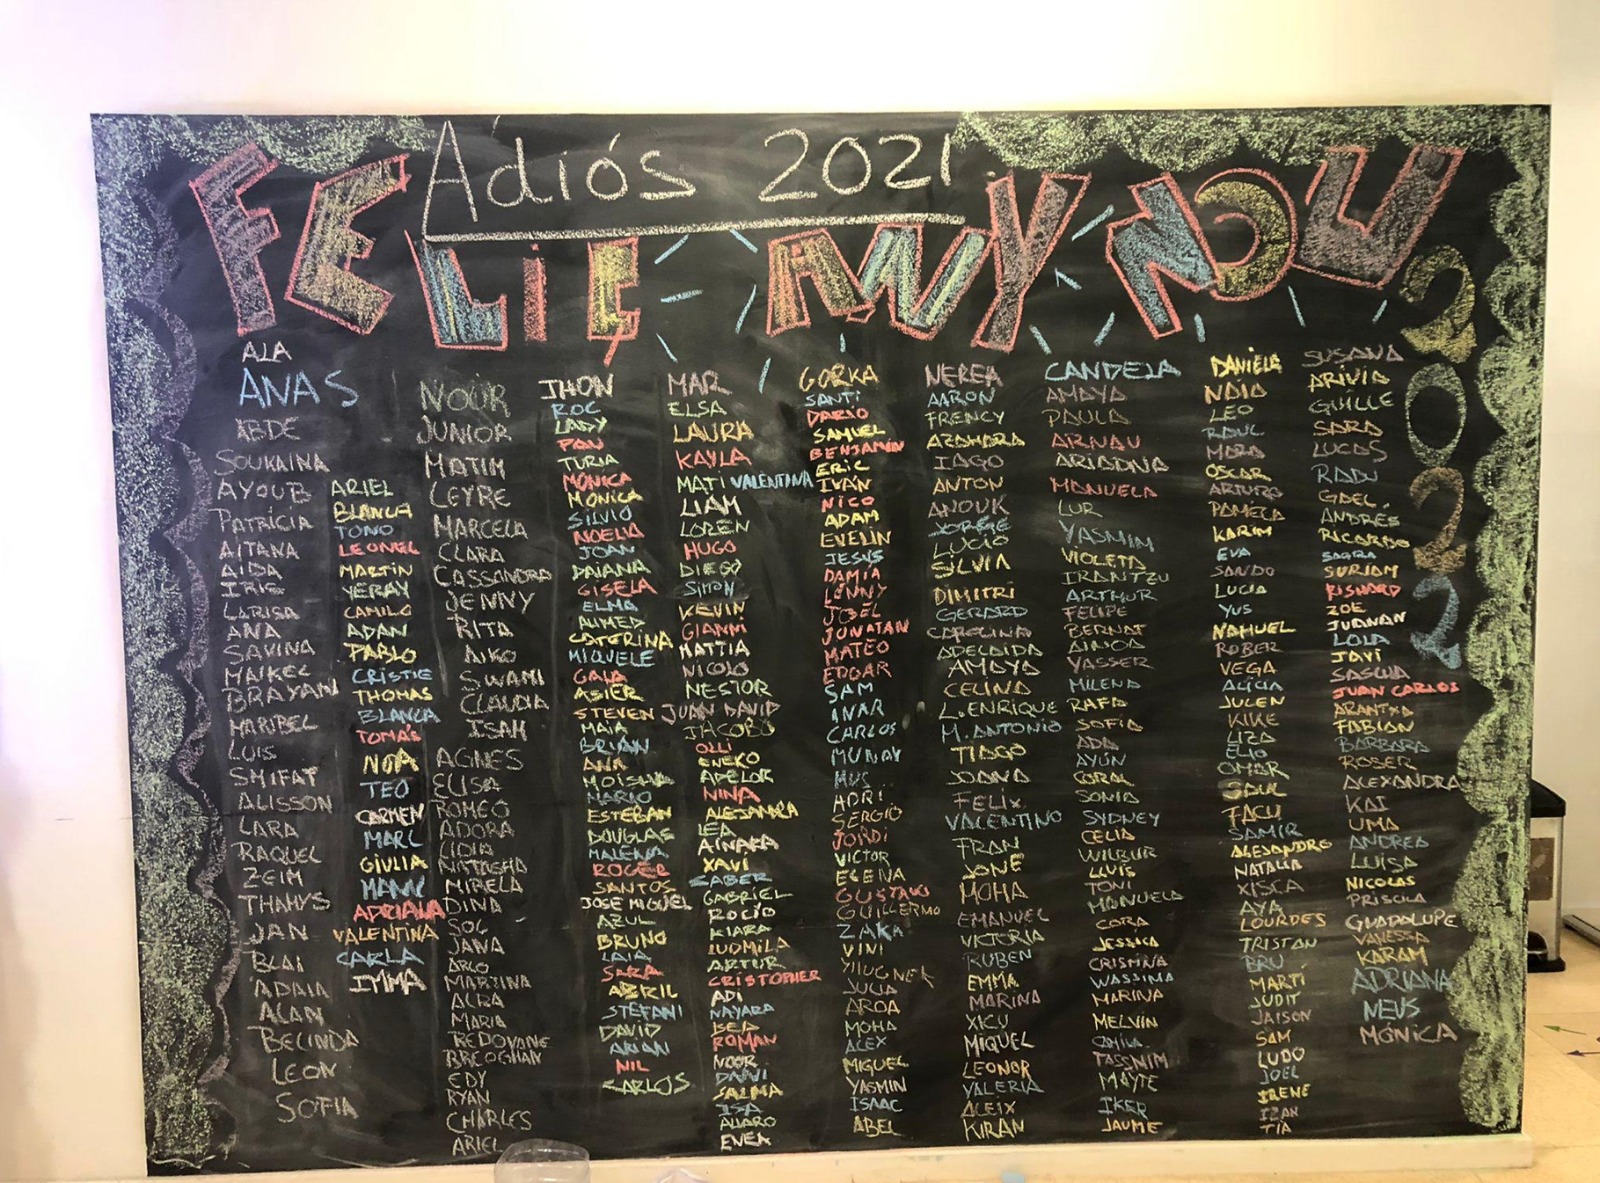 Adiós 2021
FELIÇ ANY NOU
2022
ALA
ANAS
ABDE
SOUKAINA
AYOUB
PATRÍCIA
AITANA
AIDA
IRIS
LARISA
ANA
SAVINA
MAIKEL
BRAYAN
MARIBEL
LUIS
SMIFAT
ALISSON
LARA
RAQUEL
ZEIM
THAHYS
JAN
BLAI
ADAIA
ALAN
BELINDA
LEON
SOFIA
ARIEL
BLANCA
TONO
LEONEL
MARTIN
YERAY
CAMILO
ADAN
PABLO
CRISTIE
THOMAS
BLANCA
TOMÁS
NOA
TEO
CARMEN
MARC
GIULIA
MANU
ADRIANA
VALENTINA
CARLA
IMMA
NOUR
JUNIOR
MATIM
LEYRE
MARCELA
CLARA
CASSANDRA
JENNY
RITA
AIKO
SWAMI
CLAUDIA
ISAH
AGNES
ELISA
ROMEO
ADORA
LIDIA
NATASHA
MIRELA
DINA
SOL
JANA
ARLO
MARTINA
ALBA
MARIA
REDOUANE
BREOGHAN
EDY
RYAN
CHARLES
ARIEL
JHON
ROC
LADY
PAU
TURIA
MÓNICA
MÓNICA
SILVIO
NOELIA
JOAN
DAIANA
GISELA
ELMA
AHMED
CATERINA
MIQUELE
GALA
ASIER
STEVEN
MAIA
BRIAN
ANA
MOISHA
MARIO
ESTEBAN
DOUGLAS
MALENA
ROGER
SANTOS
JOSE MIGUEL
AZUL
BRUNO
LAIA
SARA
ABRIL
STEFANI
DAVID
ARIAN
NIL
CARLOS
MAR
ELSA
LAURA
KAYLA
MATI VALENTINA
LIAM
LOREN
HUGO
DIEGO
SIMON
KEVIN
GIANNI
MATTIA
NICOLO
NESTOR
JUAN DAVID
JACOBO
OLLI
ENEKO
ADELOR
NINA
ALEJANDRA
LEA
AINARA
XAVI
SABER
GABRIEL
ROCÍO
KIARA
LUDMILA
ARTUR
CRISTOPHER
ADI
NAYARA
BEIA
ROMAN
NOOR
DANI
SALMA
ISA
ALVARO
EVEA
GORKA
SANTI
DARIO
SAMUEL
BENJAMÍN
ERIC
IVÁN
NICO
ADAM
EVELIN
JESÚS
DAMIA
LENNY
JOEL
JONATAN
MATEO
EDGAR
SAM
INAR
CARLOS
MUNAY
MUS
ADRI
SERGIO
JORDI
VICTOR
ELENA
GUSTAVO
GUILLERMO
ZAKA
VIVI
JULIA
AROA
MOHA
ALEX
MIGUEL
YASMIN
ISAAC
ABEL
NEREA
AARON
FRENCY
AZAHARA
IAGO
ANTON
ANOUK
JORGE
LUCIO
SILVIA
DIMITRI
GERARD
CAROLINA
ADELAIDA
AMAYA
CELINA
L. ENRIQUE
M. ANTONIO
TIAGO
JOANA
FELIX
VALENTINO
FRAN
JONE
MOHA
EMANUEL
VICTORIA
RUBEN
EMMA
MARINA
XICU
MIQUEL
LEONOR
VALERIA
ALEIX
KIRAN
CANDELA
AMAYA
PAULA
ARNAU
ARIADNA
MANUELA
LUR
YASMIM
VIOLETA
IRANTZU
ARTHUR
FELIPE
BERNAT
AINOA
YASSER
MILENA
RAFA
SOFIA
ADA
AYÚN
CORAL
SONIA
SYDNEY
CELIA
WILBUR
LLUÍS
TONI
MANUELA
CORA
JESSICA
CRISTINA
WASSIMA
MARINA
MELVIN
TASSNIM
MAYTE
IKER
JAUME
DANIELA
NAIA
LEO
RAUL
MARA
OSCAR
ARTURO
PAMELA
KARIM
EVA
SANDO
LUCIA
YUS
NAHUEL
ROBER
VEGA
ALICIA
JULEN
KIKE
LIZA
ELIO
OMAR
SAUL
FACU
SAMIR
ALEJANDRO
NATALIA
XISCA
AYA
LOURDES
TRISTAN
BRU
MARTÍ
JUDIT
JAISON
SAM
LUDO
JOEL
IRENE
IZAN
TIA
SUSANA
ARIVIA
GUILLE
SARA
LUCAS
RADU
GAEL
ANDRÉS
RICARDO
SAGRA
SURIAM
RISHARD
ZOE
JUANAN
LOLA
JAVI
SASCHA
JUAN CARLOS
ARANTXA
FABIAN
BARBARA
ROSER
ALEXANDRA
KAI
UMA
ANDREA
LUISA
NICOLAS
PRISCILA
GUADALUPE
VANESSA
KARAM
ADRIANA
NEUS
MÓNICA